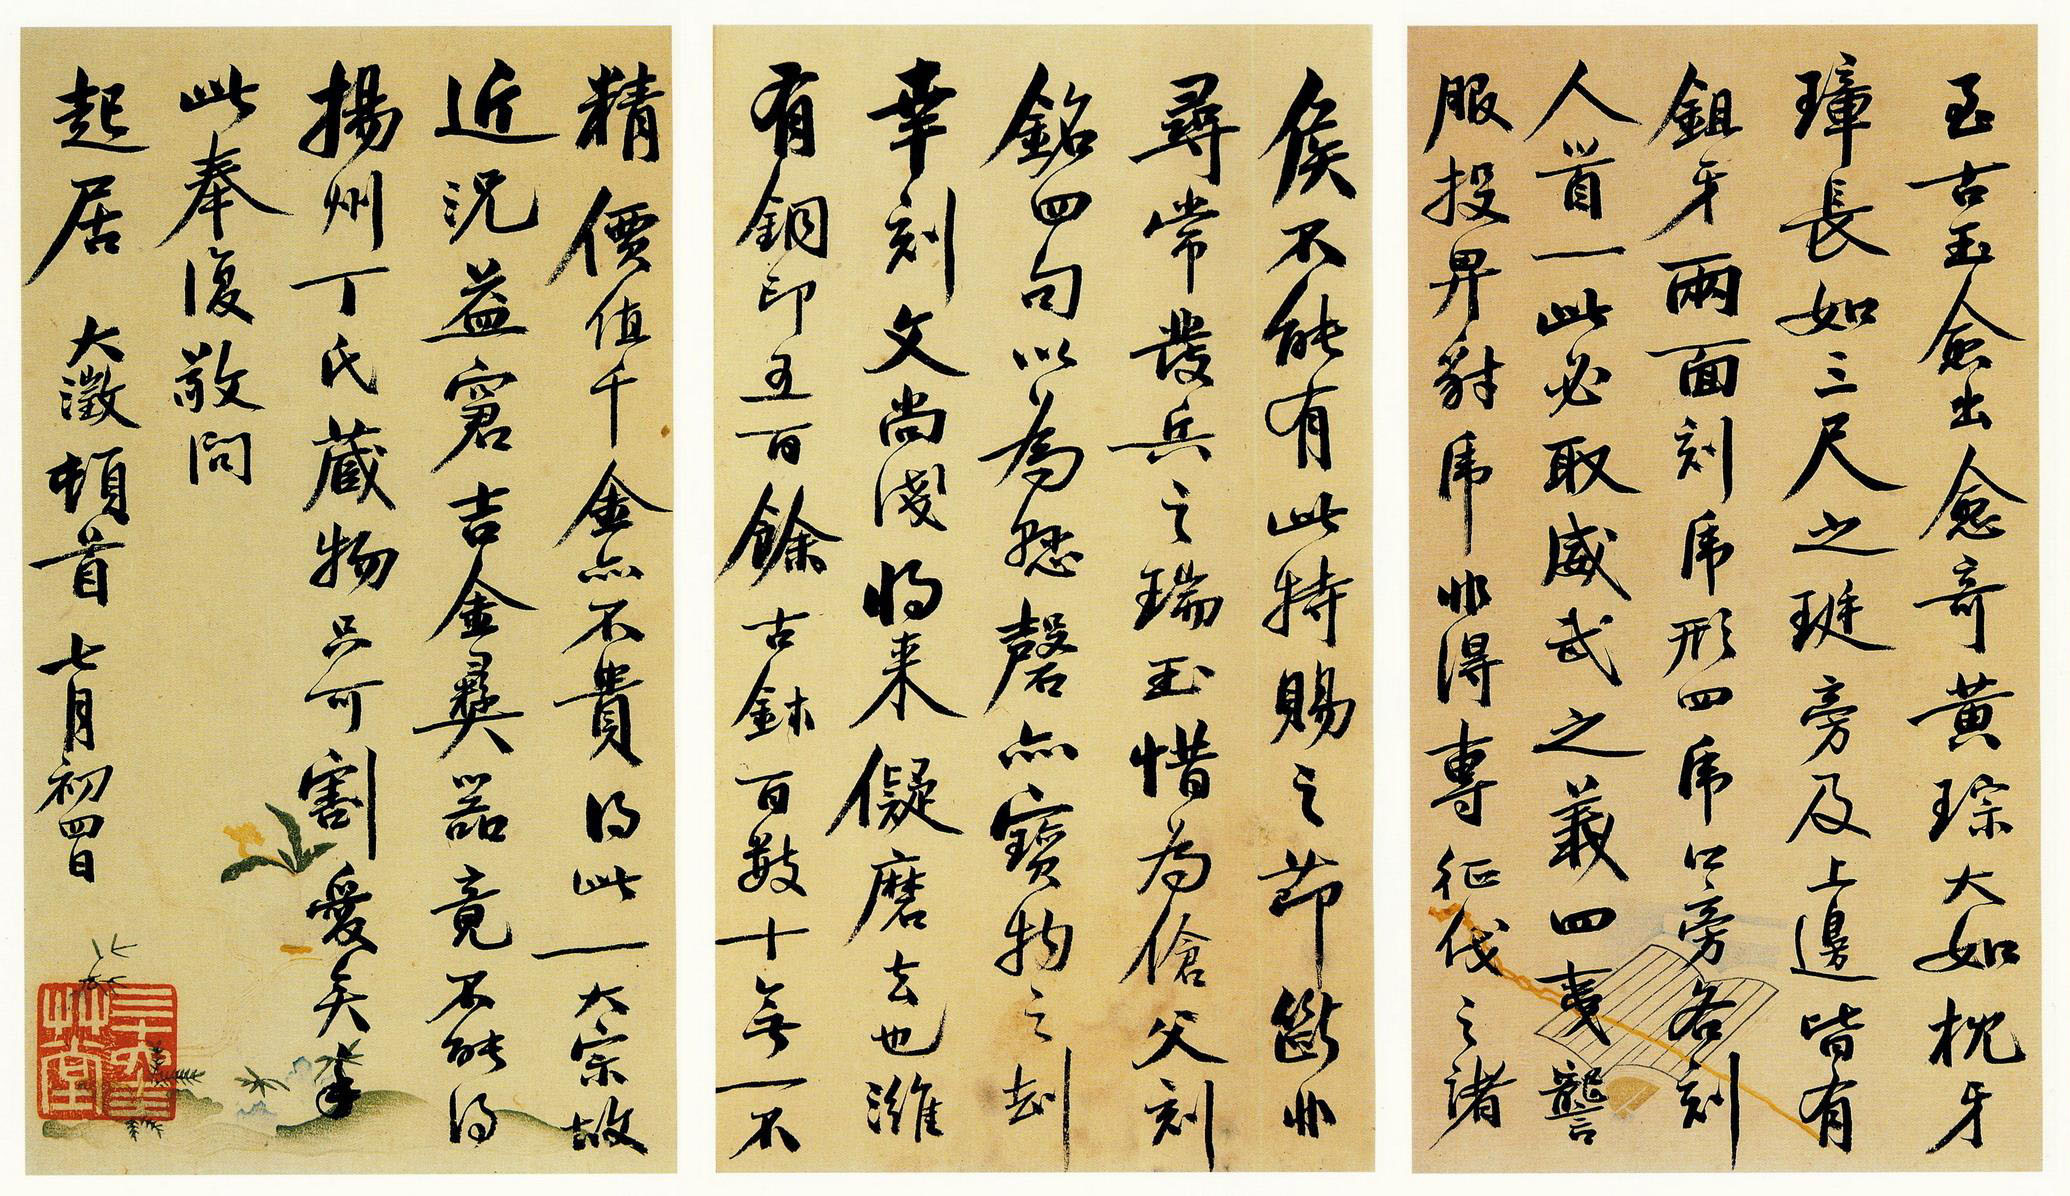 玉古玉愈出愈奇黃琮大如枕牙
璋長如三尺之珽旁及上邊皆有
鉏牙兩面刻虎形四虎口旁各刻
人首一此必取威武之義四夷讋
服投畀豺虎非得專征伐之諸
侯不能有此特賜之節斷非
尋常發兵之瑞玉惜為傖父刻
銘四句以為怒磬亦寶物之劫
幸刻文尚淺將來儗磨去也濰
有銅印五百餘古鉢百數十無一不
精價值千金亦不貴得此一大宗故
近況益窘吉金彝器竟不能得
揚州丁氏藏物只可割愛矣肅
此奉復敬問
起居 大澂頓首 七月初四日